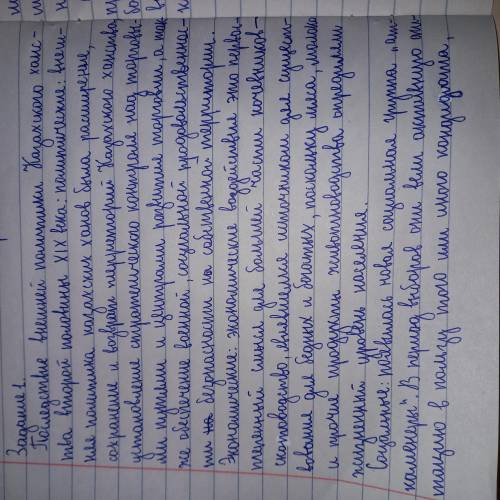 Задание 1.
Последствие внешней политики Казахского ханс-
тва второй половины XIX века: политические: внеш-
няя политика казахских ханов была расширение,
сохранение и возврат территорий Казахского ханства,
установление стратегического контроля над торговы-
ми путями и центрами развитие торговли, а так
же обеспечение военной, социальной, продовольственнос-
ти на безопасности на собственной территории.
Экономические: экономические воздействия это перво-
степенный смысл для большей части кочевников-
скотоводство, являвшееся источником для сущест-
вования для бедных и богатых, поскольку мяса, молока
и прочие продукты животноводства определяли
жизненный уровень населения.
Социальные: появилась новая социальная группа "
каменеры". В период выборов они вели активную
тацию в пользу того или иного кандидата,